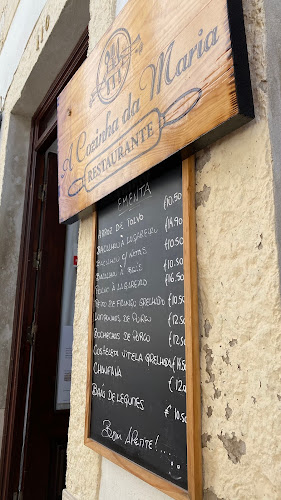 110
A Cozinha da Maria
RESTAURANTE
EMENTA
ARROZ DE POLVO €10.50
BACALHAU À LAGAREIRO €14.90
BACALHAU C/ NATAS €10.50
BACALHAU À BRÁS €10.50
POLVO À LAGAREIRO €16.50
PEITO DE FRANGO GRELHADO €10.50
LOMBINHOS DE PORCO €12.50
BOCHECHAS DE PORCO €12.50
COSTELETA VITELA GRELHADA €14.50
CHANFANA €12.50
BAIÃO DE LEGUMES € 10.50
BOM APETITE!...